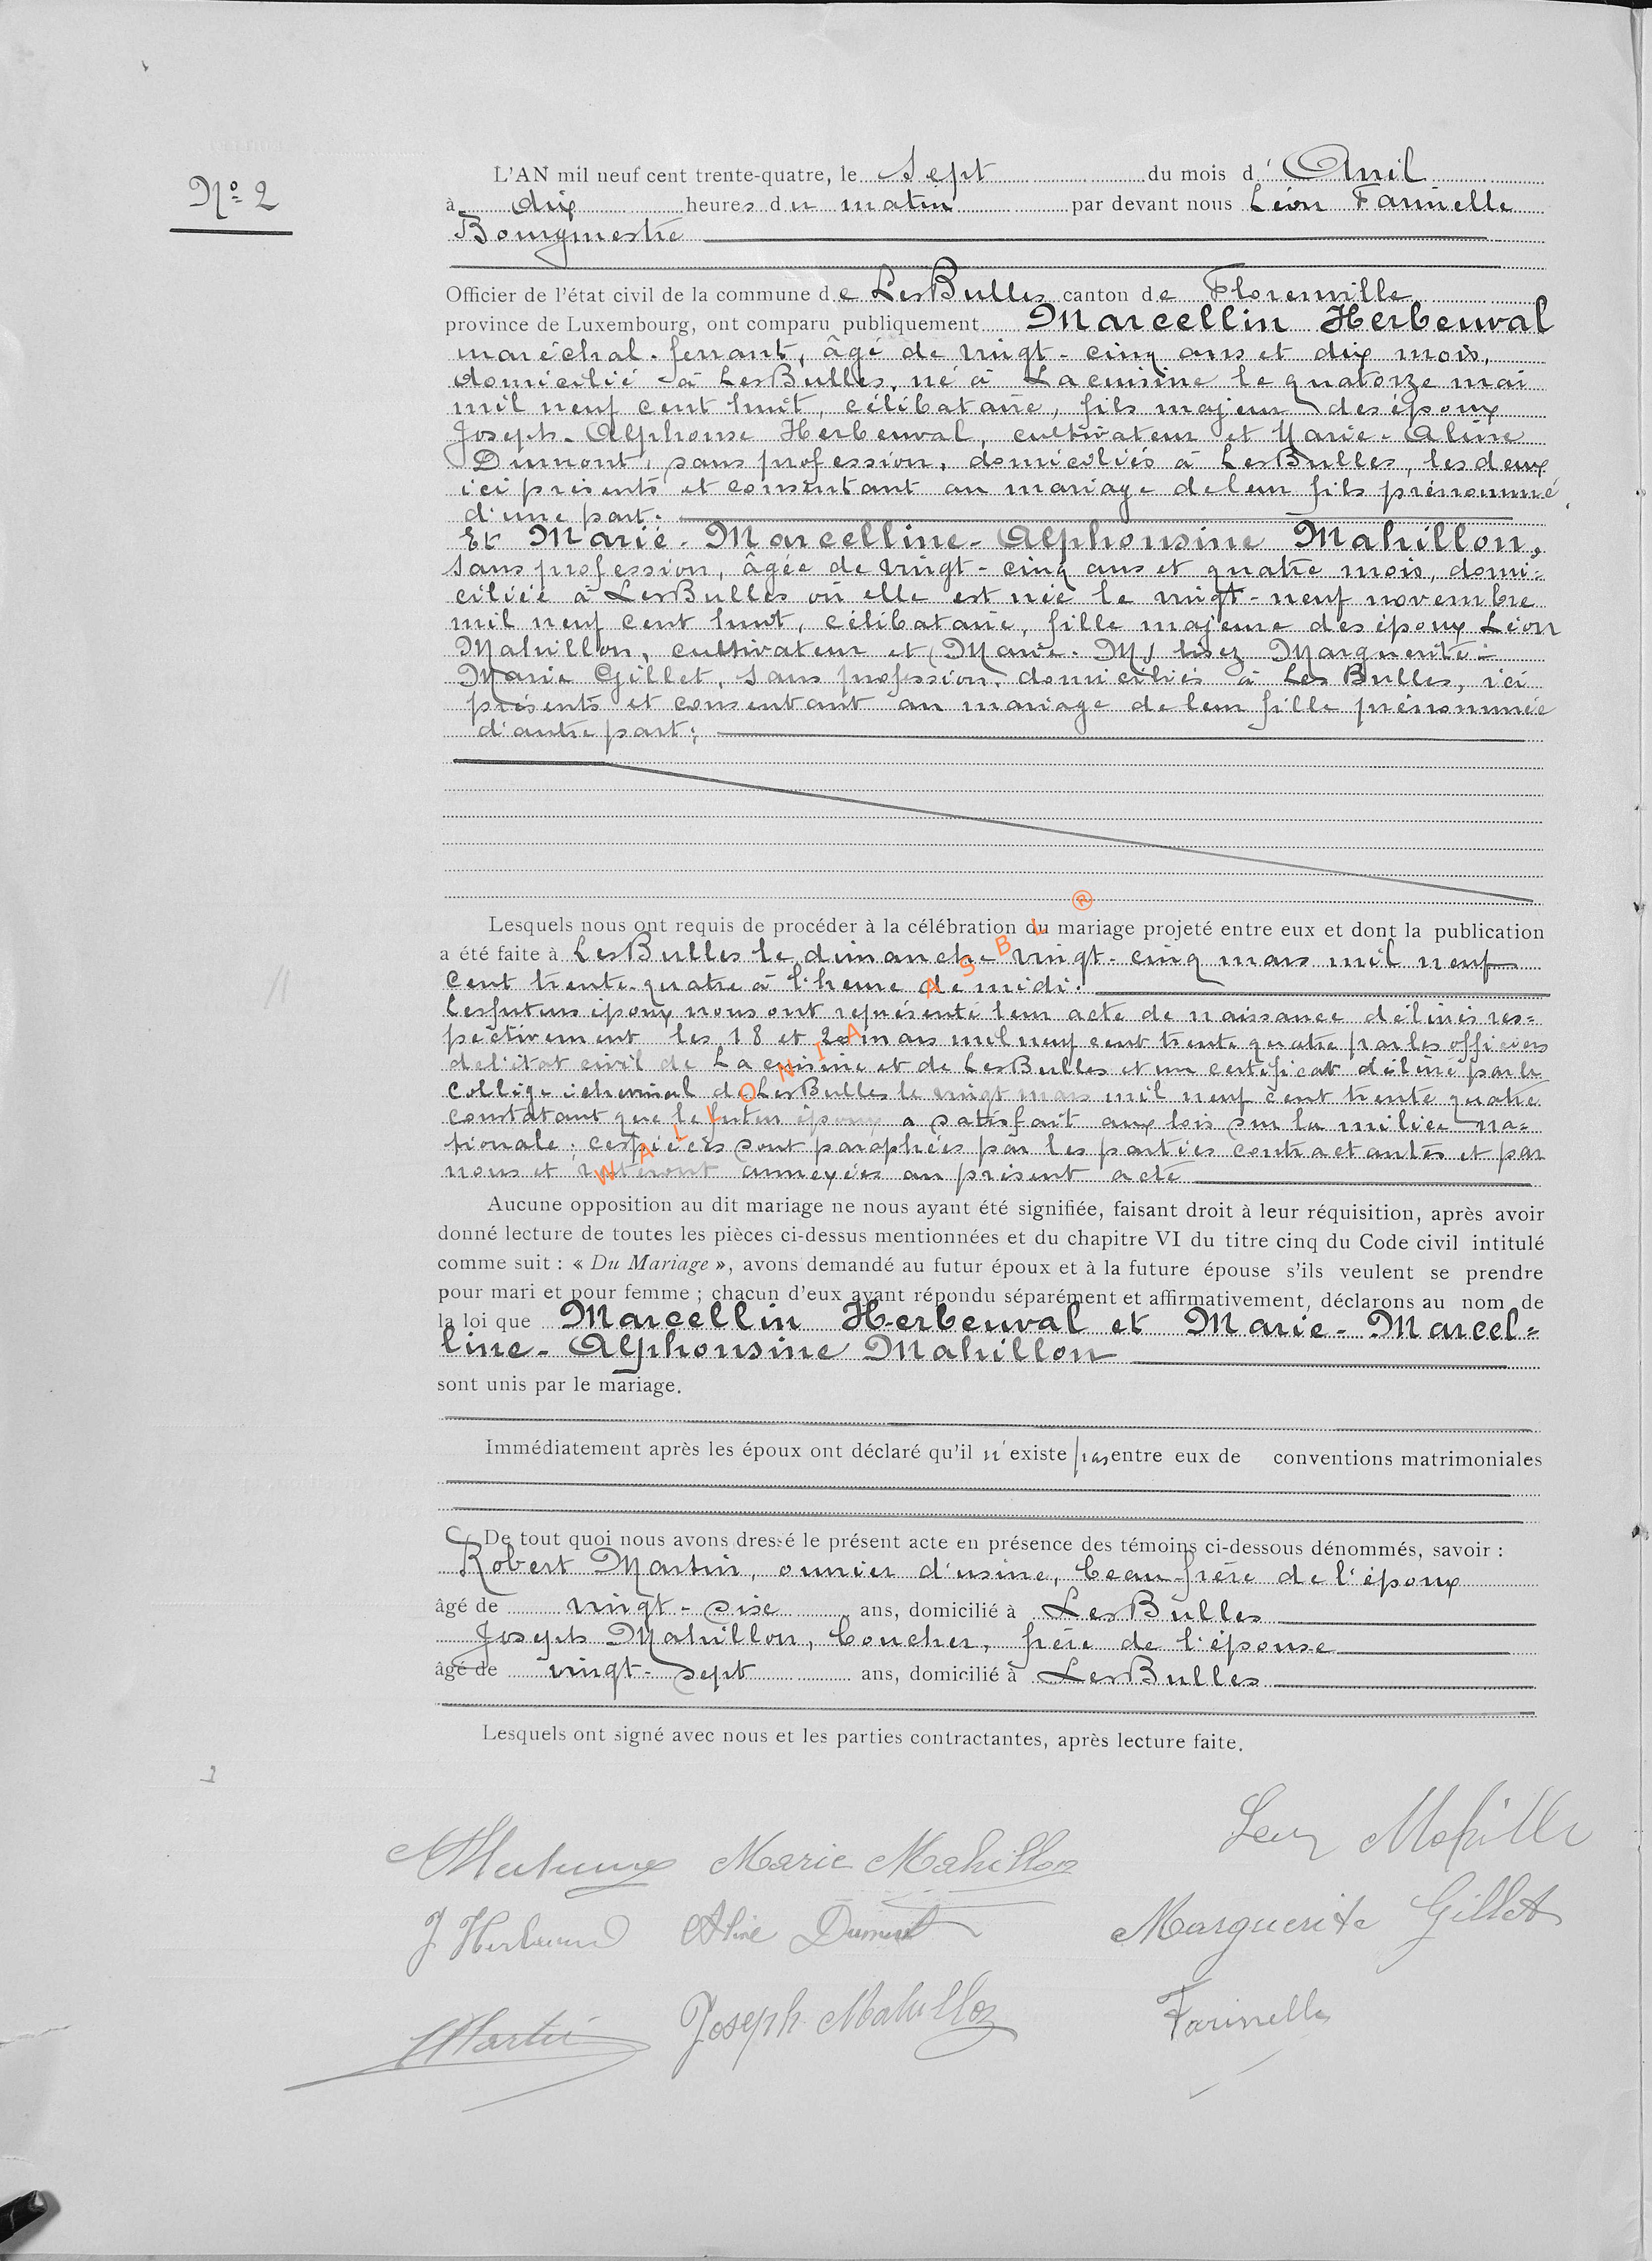 Nº 2
L'AN mil neuf cent trente-quatre, le Sept du mois d' Avril
à dix heures du matin par devant nous Léon Farinelle
Bourgmestre
Officier de l'état civil de la commune de LesBulles canton de Florenville
province de Luxembourg, ont comparu publiquement Marcellin Herbeuval
maréchal-ferrant, âgé de vingt-cinq ans et dix mois,
domicilié à LesBulles, né à Lacuisine le quatorze mai
mil neuf cent huit, célibataire, fils majeur des époux
Joseph-Alphonse Herbeuval, cultivateur et Marie-Aline
Dumont, sans profession, domiciliés à LesBulles, les deux
ici présents et consentant au mariage de leur fils prénommé
d'une part.
Et Marie-Marcelline-Alphonsine Mahillon,
sans profession, âgée de vingt-cinq ans et quatre mois, domi=
ciliée à LesBulles où elle est née le vingt-neuf novembre
mil neuf cent huit, célibataire, fille majeure des époux Léon
Mahillon, cultivateur et (Marie-M) lisez Marguerite-
Marie Gillet, sans profession, domiciliés à Les Bulles, ici
présents et consentant au mariage de leur fille prénommée
d'autre part;
Lesquels nous ont requis de procéder à la célébration du mariage projeté entre eux et dont la publication
a été faite à LesBulles le dimanche vingt-cinq mars mil neuf
cent trente-quatre à l'heure de midi.
Les futurs époux nous ont représenté leur acte de naissance délivrés res=
pectivement les 18 et 20 mars mil neuf cent trente quatre par les officiers
de l'état civil de Lacuisine et de LesBulles et un certificat délivré par le
Collège échevinal de LesBulles le vingt mars mil neuf cent trente quatre
constatant que le futur époux a satisfait aux lois sur la milice na=
tionale; ces pièces sont paraphées par les parties contractantes et par
nous et resteront annexées au présent acte
WALLONIA ASBL ®
Aucune opposition au dit mariage ne nous ayant été signifiée, faisant droit à leur réquisition, après avoir
donné lecture de toutes les pièces ci-dessus mentionnées et du chapitre VI du titre cinq du Code civil intitulé
comme suit : « Du Mariage », avons demandé au futur époux et à la future épouse s'ils veulent se prendre
pour mari et pour femme ; chacun d'eux ayant répondu séparément et affirmativement, déclarons au nom de
la loi que Marcellin Herbeuval et Marie-Marcel=
line-Alphonsine Mahillon
sont unis par le mariage.
Immédiatement après les époux ont déclaré qu'il n'existe pas entre eux de conventions matrimoniales
De tout quoi nous avons dressé le présent acte en présence des témoins ci-dessous dénommés, savoir :
Robert Martin, ouvrier d'usine, beau-frère de l'époux
âgé de vingt-six ans, domicilié à LesBulles
Joseph Mahillon, boucher, frère de l'épouse
âgé de vingt-sept ans, domicilié à LesBulles
Lesquels ont signé avec nous et les parties contractantes, après lecture faite.
Marie Mahillon
Aline Dumont Marguerite Gillet
Martin Joseph Mahillon Farinelle